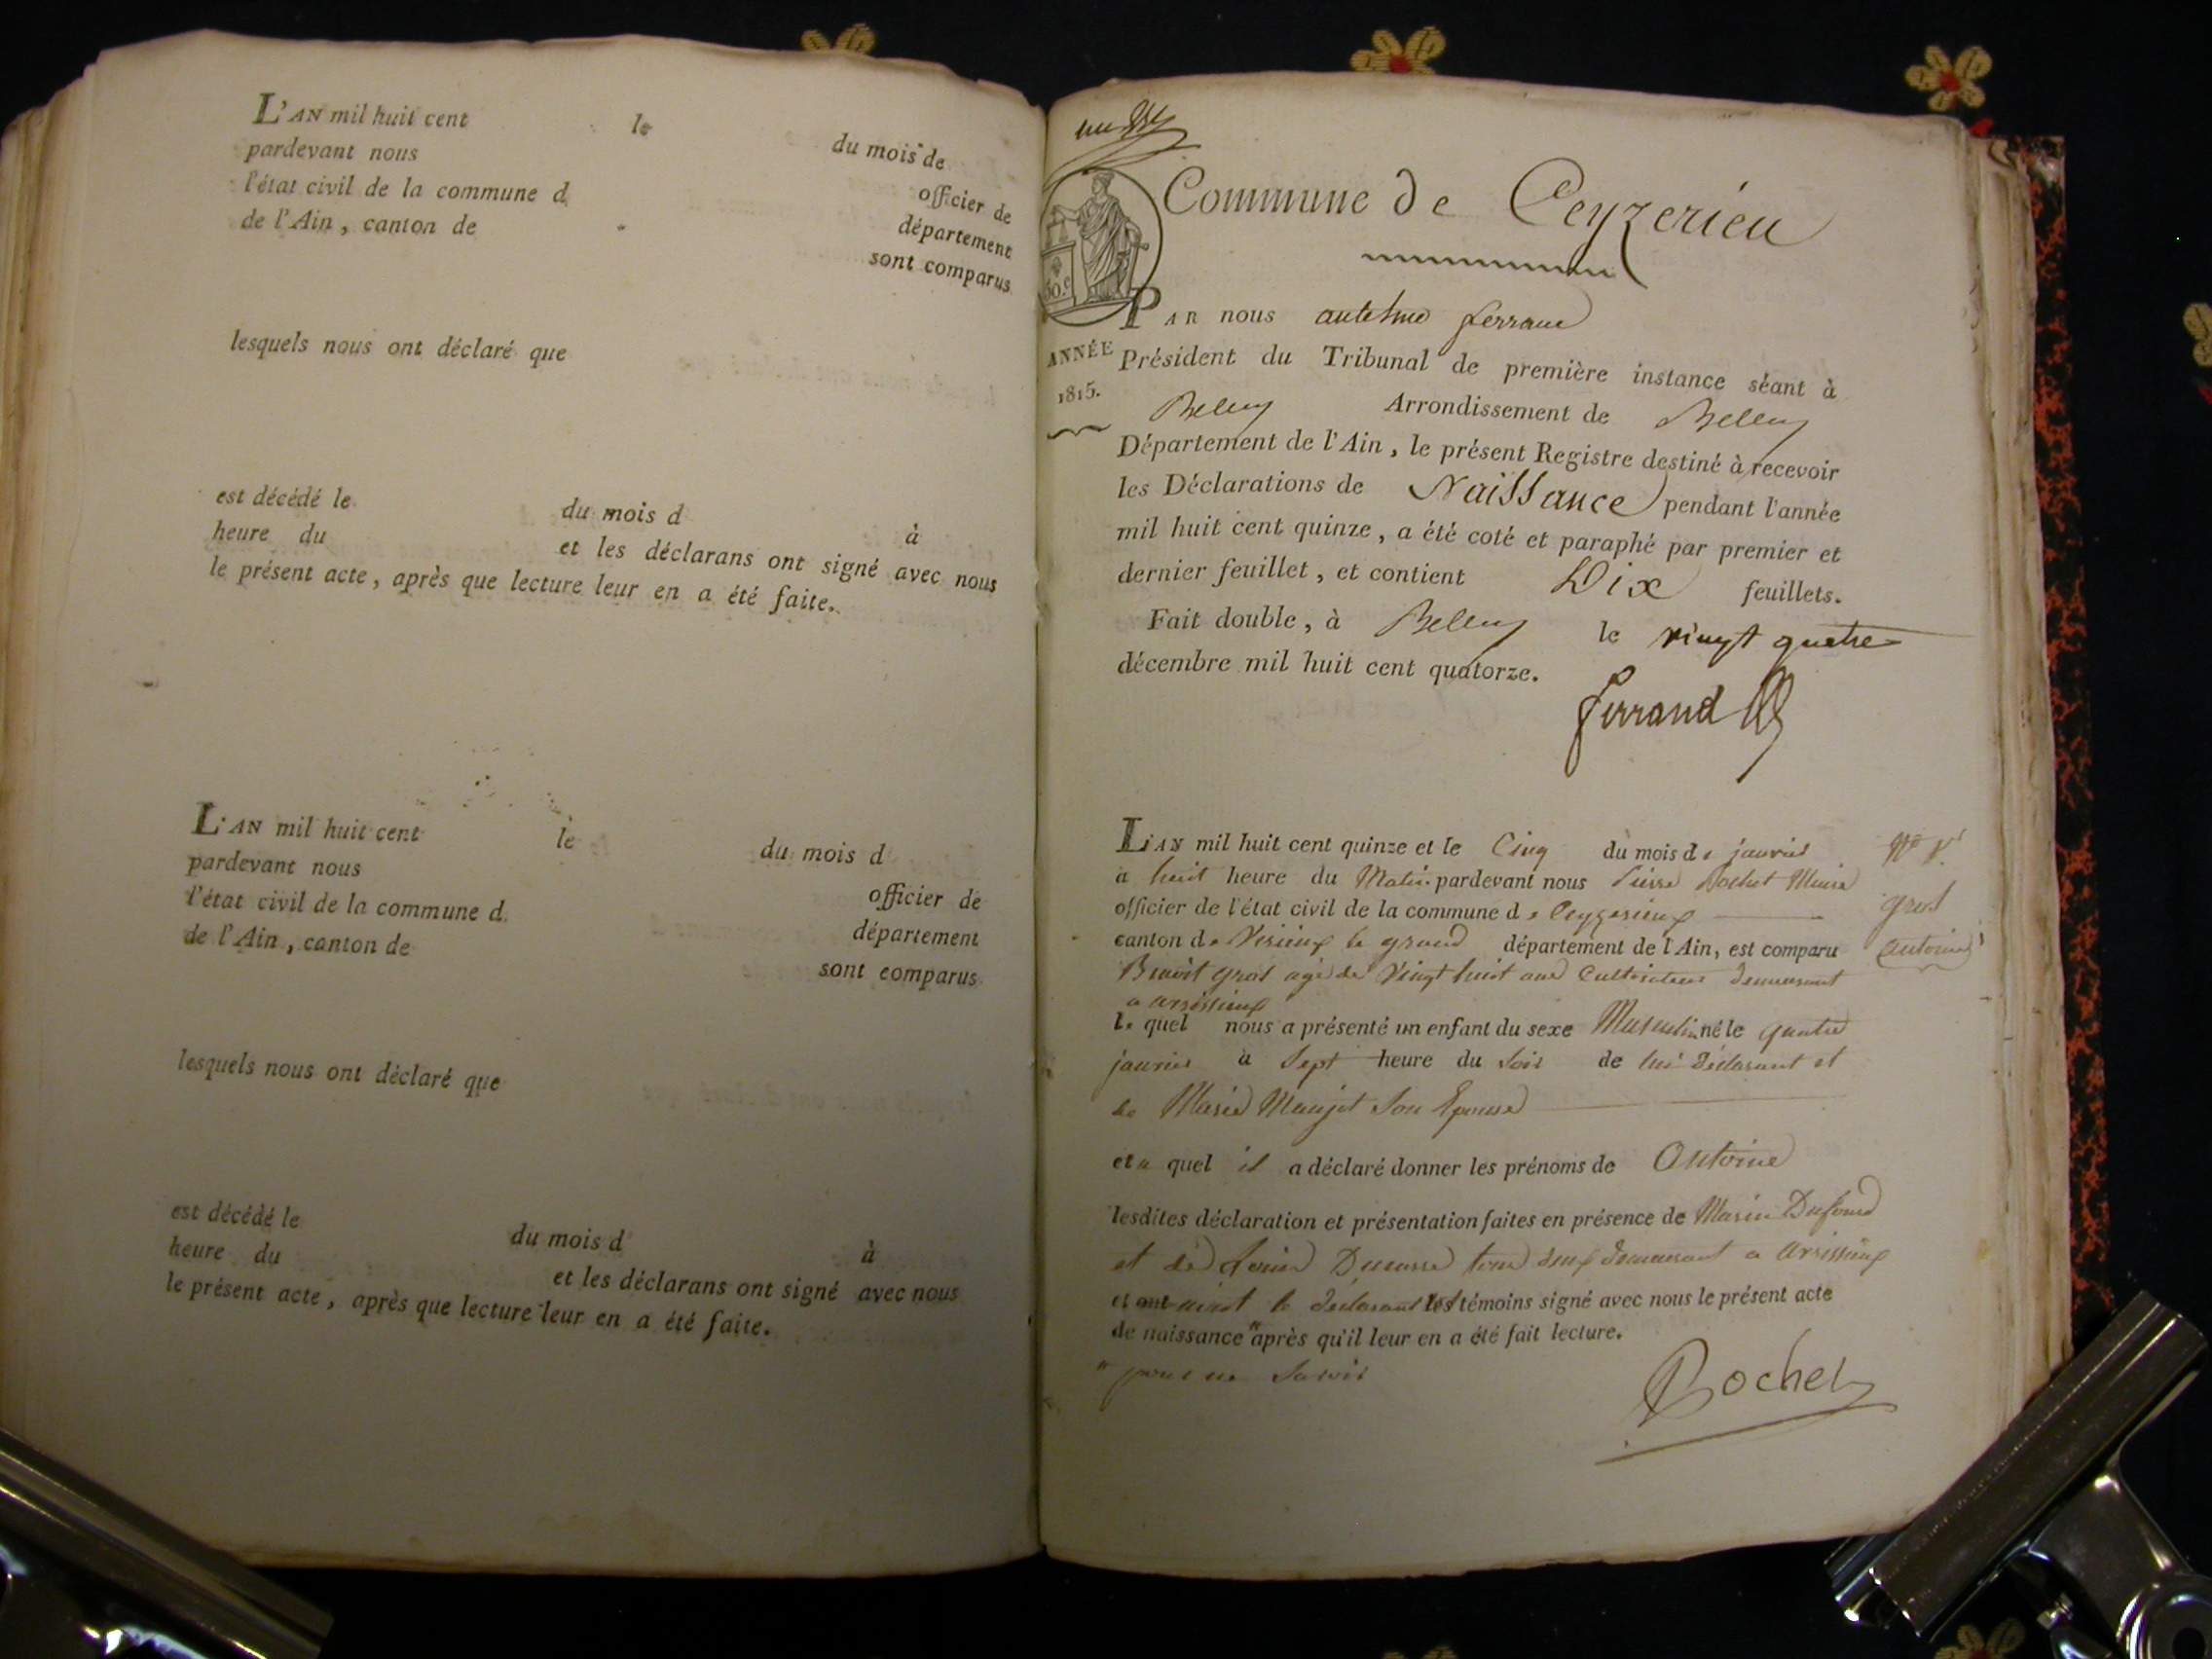 L'AN mil huit cent le du mois de
pardevant nous officier de
l'état civil de la commune d département
de l'Ain, canton de sont comparus
lesquels nous ont déclaré que
est décédé le du mois d à
heure du et les déclarans ont signé avec nous
le présent acte, après que lecture leur en a été faite.
L'AN mil huit cent le du mois d
pardevant nous officier de
l'état civil de la commune d département
de l'Ain, canton de sont comparus
lesquels nous ont déclaré que
est décédé le du mois d à
heure du et les déclarans ont signé avec nous
le présent acte, après que lecture leur en a été faite.
Commune de Ceyzerieu
50.c
PAR nous antelme ferrand
ANNÉE
1815.
Président du Tribunal de première instance séant à
Belley Arrondissement de Belley
Département de l'Ain, le présent Registre destiné à recevoir
les Déclarations de Naissance pendant l'année
mil huit cent quinze, a été coté et paraphé par premier et
dernier feuillet, et contient Dix feuillets.
Fait double, à Belley le vingt quatre
décembre mil huit cent quatorze.
ferrand
L'AN mil huit cent quinze et le Cinq du mois de janvier
a huit heure du Matin pardevant nous Pierre Rochet Maire
officier de l'état civil de la commune de Ceyzerieux
canton de Virieux le grand département de l'Ain, est comparu
Benoit gros agé de Vingt huit ans Cultivateur demeurant
a avrissieux
le quel nous a présenté un enfant du sexe Masculin né le quatre
janvier à Sept heure du Soir de lui déclarant et
de Marie Maujot Son Epouse
et a quel il a déclaré donner les prénoms de Antoine
lesdites déclaration et présentation faites en présence de Marin Dufour
et de Louis tous deux demeurant a Avrissieux
et ont le déclarant les témoins signé avec nous le présent acte
de naissance après qu'il leur en a été fait lecture.
" pour ne Savoir
Rochet
N° 1er
gros
antoine